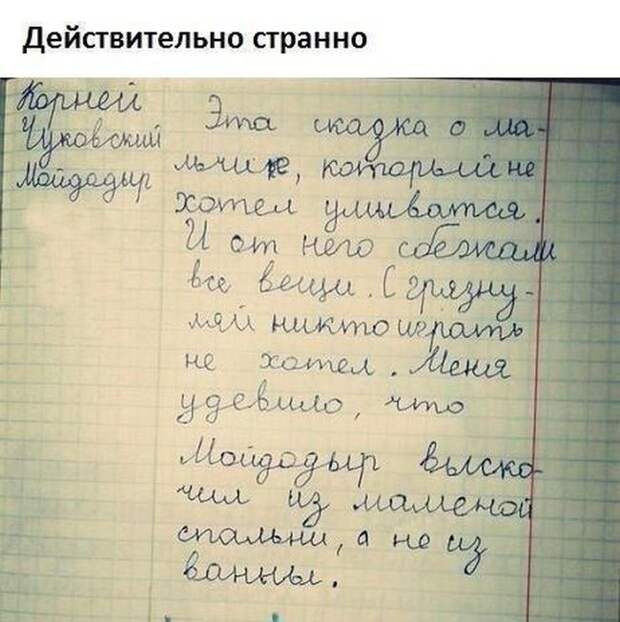 Действительно странно
Корней
Чуковский
Мойдодыр
Эта сказка о ма-
льчике, который не
хотел умыватся.
И от него сбежали
все вещи. С грязну-
лей никто играть
не хотел. Меня
удевило, что
Мойдодыр выско
чил из маменой
спальни, а не из
ванны.